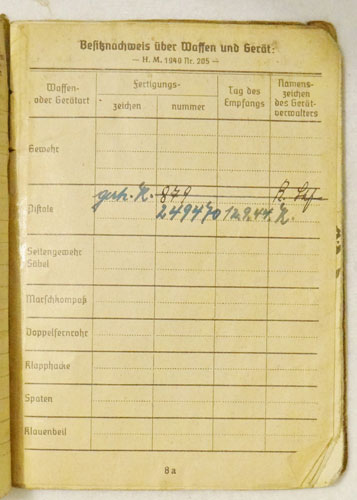 Besitznachweis über Waffen und Gerät:
— H. M. 1940 Nr. 205 —
Waffen-
oder Gerätart
Fertigungs-
zeichen
nummer
Tag des
Empfangs
Namens-
zeichen
des Gerät-
verwalters
Gewehr
879
Pistole
249470 12.9.44. K.
Seitengewehr
Säbel
Marschkompaß
Doppelfernrohr
Klapphacke
Spaten
Klauenbeil
8a